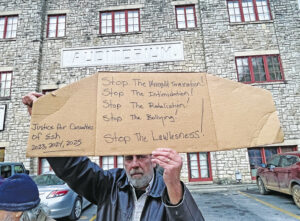 AUDITORIUM
Stop The Wrongful Termination!
Stop The Intimidation!
Stop The Retaliation!
Stop The Bullying!
Stop The Lawlessness!
Justice for Casualties
of ESH
2023, 2024, 2025